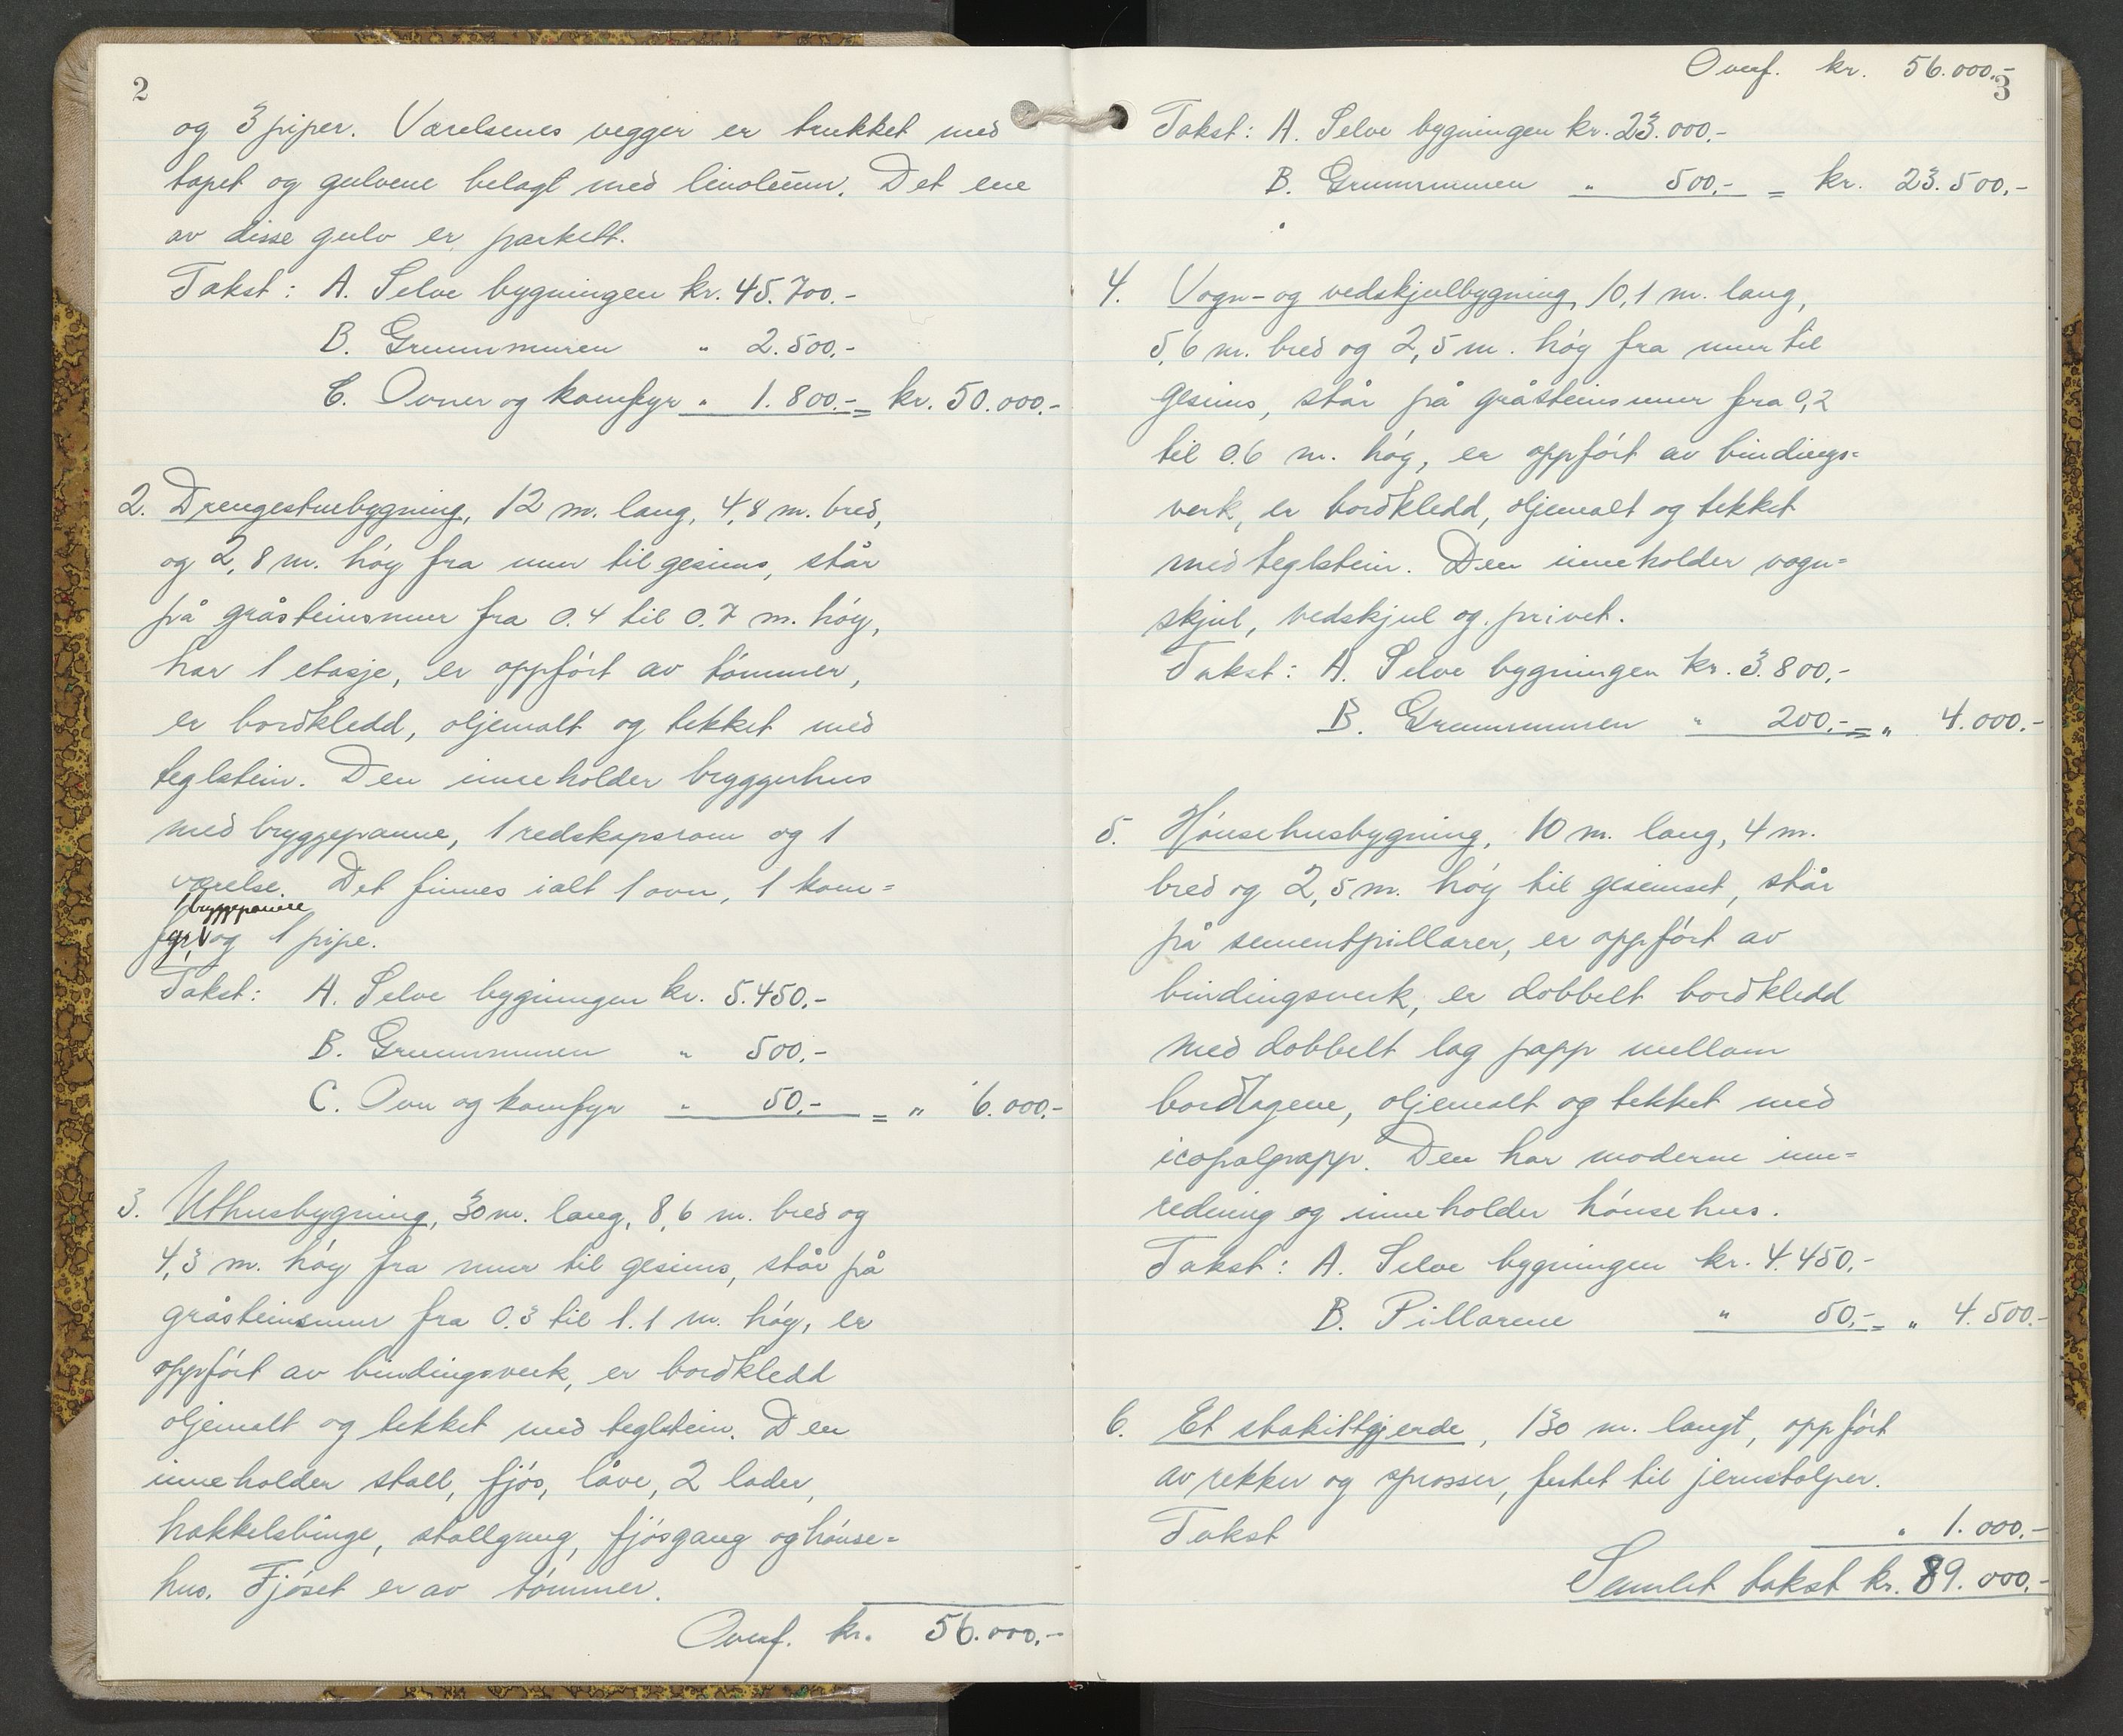 2
og 3 piper. Værelsenes vegger er trukket med
tapet og gulvene belagt med linoleum. Det ene
av disse gulv er parkett.
Takst: A. Selve bygningen kr. 45.700.-
B. Grunnmuren " 2.500,-
C. Ovner og komfyr " 1.800.- = kr. 50.000.-
2. Drengestuebygning, 12 m. lang, 4,8 m. bred,
og 2,8 m. høy fra mur til gesims, står
på gråsteinsmur fra 0.4 til 0.7 m. høy,
har 1 etasje, er oppført av tømmer,
er bordkledd, oljemalt og tekket med
teglstein. Den inneholder bryggerhus
med bryggepanne, 1 redskapsrom og 1
værelse. Det finnes ialt 1 ovn, 1 kom=
1 bryggepanne
fyr, og 1 pipe.
Takst: A. Selve bygningen kr. 5.450,-
B. Grunnmuren " 500,-
C. Ovn og komfyr " 50,- = " 6.000.-
3. Uthusbygning, 30 m. lang, 8,6 m. bred og
4,3 m. høy fra mur til gesims, står på
gråsteinsmur fra 0.3 til 1.1 m. høy, er
oppført av bindingsverk, er bordkledd
oljemalt og tekket med teglstein. Den
inneholder stall, fjøs, låve, 2 lader,
hakkelsbinge, stallgang, fjøsgang og hønse=
hus. Fjøset er av tømmer.
Overf. kr. 56.000.-
Overf. kr. 56.000.-
3
Takst: A. Selve bygningen kr. 23.000.-
B. Grunnmuren " 500,- = kr. 23.500,-
4. Vogn- og vedskjulbygning, 10,1 m. lang,
5,6 m. bred og 2,5 m. høy fra mur til
gesims, står på gråsteinsmur fra 0,2
til 0.6 m. høy, er oppført av bindings=
verk, er bordkledd, oljemalt og tekket
med teglstein. Den inneholder vogn=
skjul, vedskjul og privet.
Takst: A. Selve bygningen kr. 3.800,-
B. Grunnmuren " 200,- = " 4.000.-
5. Hønsehusbygning, 10 m. lang, 4 m.
bred og 2,5 m. høy til gesimset, står
på sementpillarer, er oppført av
bindingsverk, er dobbelt bordkledd
med dobbelt lag papp mellom
bordlagene, oljemalt og tekket med
icopalpapp. Den har moderne inn=
redning og inneholder hønsehus.
Takst: A. Selve bygningen kr. 4.450,-
B. Pillarene " 50,- = " 4.500.-
6. Et stakittgjerde, 130 m. langt, oppført
av rekker og sprosser, festet til jernstolper.
Takst " 1.000.-
Samlet takst kr. 89.000.-